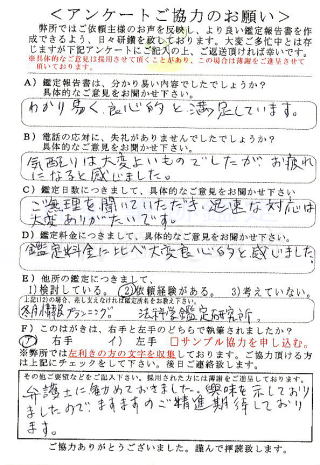 ＜アンケートご協力のお願い＞
弊所ではご依頼主様のお声を反映し、より良い鑑定報告書を作
成できるよう、日々研鑽を致しております。大変ご多忙中とは存
じますが下記アンケートにご記入の上、ご返送頂ければ幸いです。
※具体的なご意見は採用させて頂くことがあり、この場合は薄謝をご進呈させて
頂いております。
A）鑑定報告書は、分かり易い内容でしたでしょうか？
具体的なご意見をお聞かせ下さい。
わかり易く、良心的と満足しています。
B）電話の応対に、失礼がありませんでしたでしょうか？
具体的なご意見をお聞かせ下さい。
気配りは大変よいものでしたが、お疲れ
になると感じました。
C）鑑定日数につきまして、具体的なご意見をお聞かせ下さい
ご無理を聞いていただき、迅速な対応は
大変ありがたいです。
D）鑑定料金につきまして、具体的なご意見をお聞かせ下さい
鑑定料金に比べ大変良心的と感じました
E）他所の鑑定につきまして、
1)検討している。 ②依頼経験がある。 3)考えていない。
上記(2)の場合、差し支えなければ鑑定所名をお教え下さい。
情報プランニング 法科学鑑定研究所。
F）このはがきは、右手と左手のどちらで執筆されましたか？
㋐ 右手 イ）左手 □サンプル協力を申し込む。
※弊所では左利きの方の文字を収集しております。ご協力頂ける方
は上記にチェックをして下さい。後日ご連絡致します。
その他ご要望などをご記入下さい。採用された方には薄謝をご進呈致します。
弁護士に勧めておきました。興味を示しており
ましたので、ますますのご精進期待しており
ます。
ご協力ありがとうございました。謹んで拝読致します。